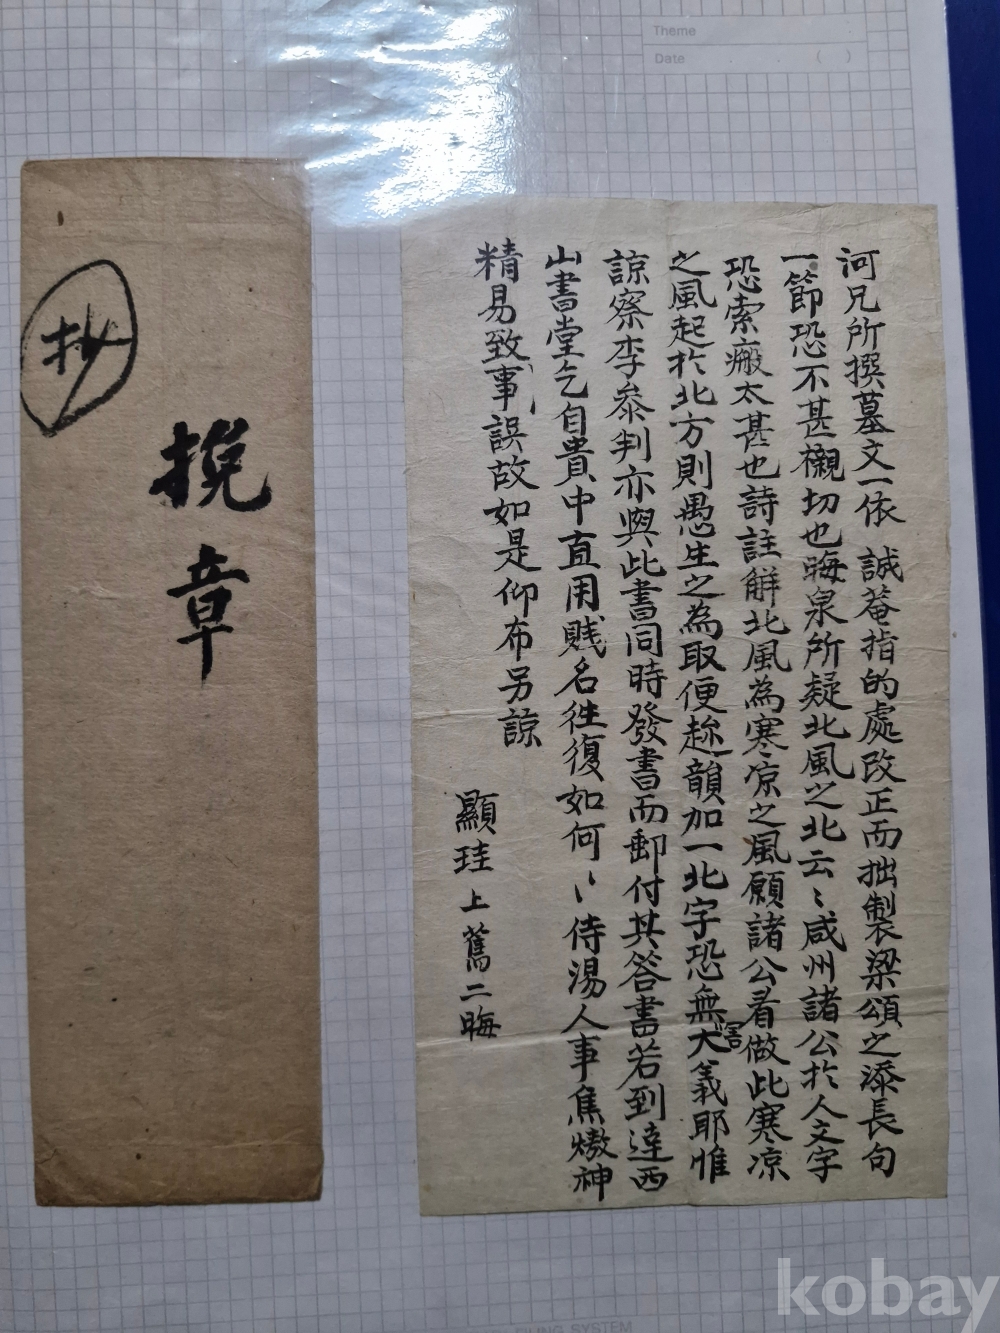 Theme
Date ( )
河兄所撰墓文一依 誠菴指的處改正而拙製梁頌之添長句
一節恐不甚襯切也晦泉所疑北風之北云〻咸州諸公於人文字
恐索瘢太甚也詩註解北風為寒凉之風願諸公看做此寒凉
之風起於北方則愚生之為取便趂韻加一北字恐無大害義耶惟
諒察李叅判亦與此書同時發書而郵付其答書若到達西
山書堂乞自貴中直用賤名往復如何〻侍湯人事焦熬神
精易致事誤故如是仰布另諒
顯珪上 二晦
抄
挽章
kobay
FILING SYSTEM